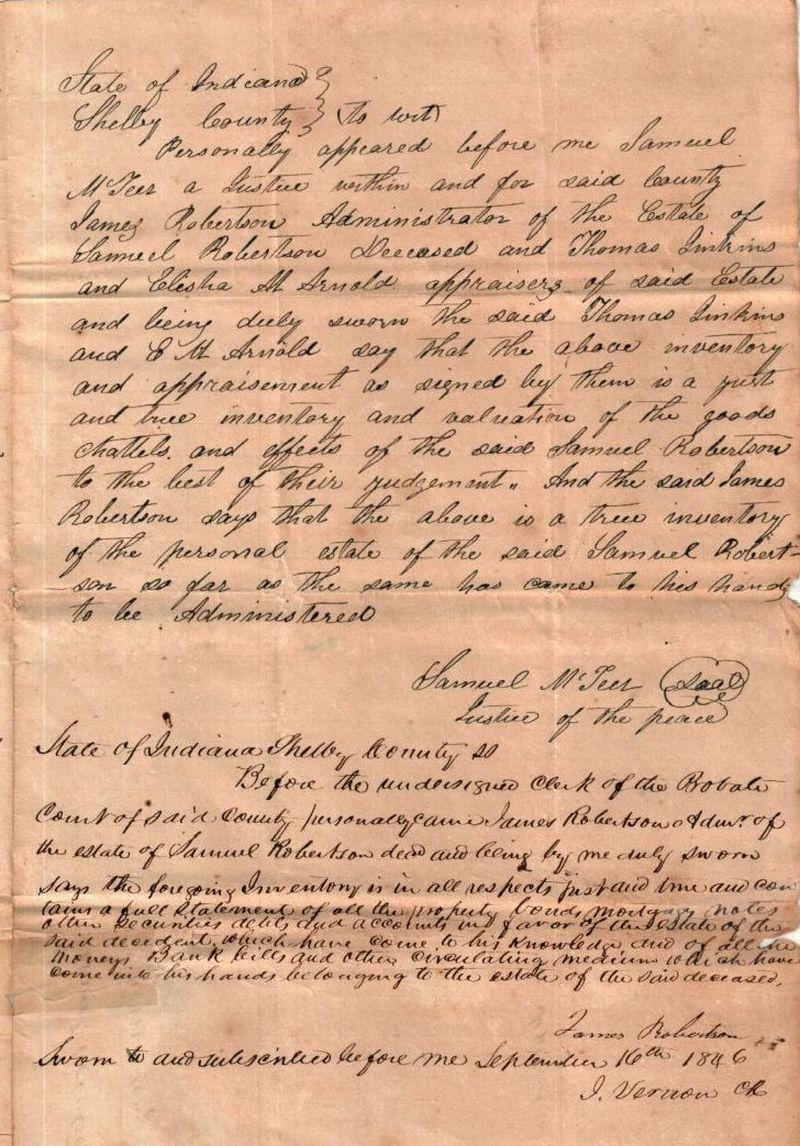 State of Indiana }
Shelby County } to wit
Personally appeared before me Samuel
McTeer a Justice within and for said County
James Robertson Administrator of the Estate of
Samuel Robertson Deceased and Thomas Jinkins
and Elisha M Arnold appraisers of said Estate
and being duly sworn the said Thomas Jinkins
and E M Arnold say that the above inventory
and appraisement as signed by them is a just
and true inventory and valuation of the goods
chattels. and effects of the said Samuel Robertson
to the best of their judgement" And the said James
Robertson says that the above is a true inventory
of the personal estate of the said Samuel Robert-
-son so far as the same has came to his hands
to be Administered
Samuel McTeer seal
Justice of the peace
State of Indiana Shelby County ss
Before the undersigned Clerk of the Probate
Court of said County personally came James Robertson Admr. of
the estate of Samuel Robertson decd and being by me duly sworn
says the foregoing Inventory is in all respects just and true and con
tains a full Statement of all the property bonds mortgages notes
other Securities debts and accounts in favor of the estate of the
said decedent which have come to his knowledge and of all the
moneys Bank bills and other circulating medium which have
come into his hands belonging to the estate of the said deceased.
James Robertson
Sworn to and subscribed before me September 16th 1846
J. Vernon Clk